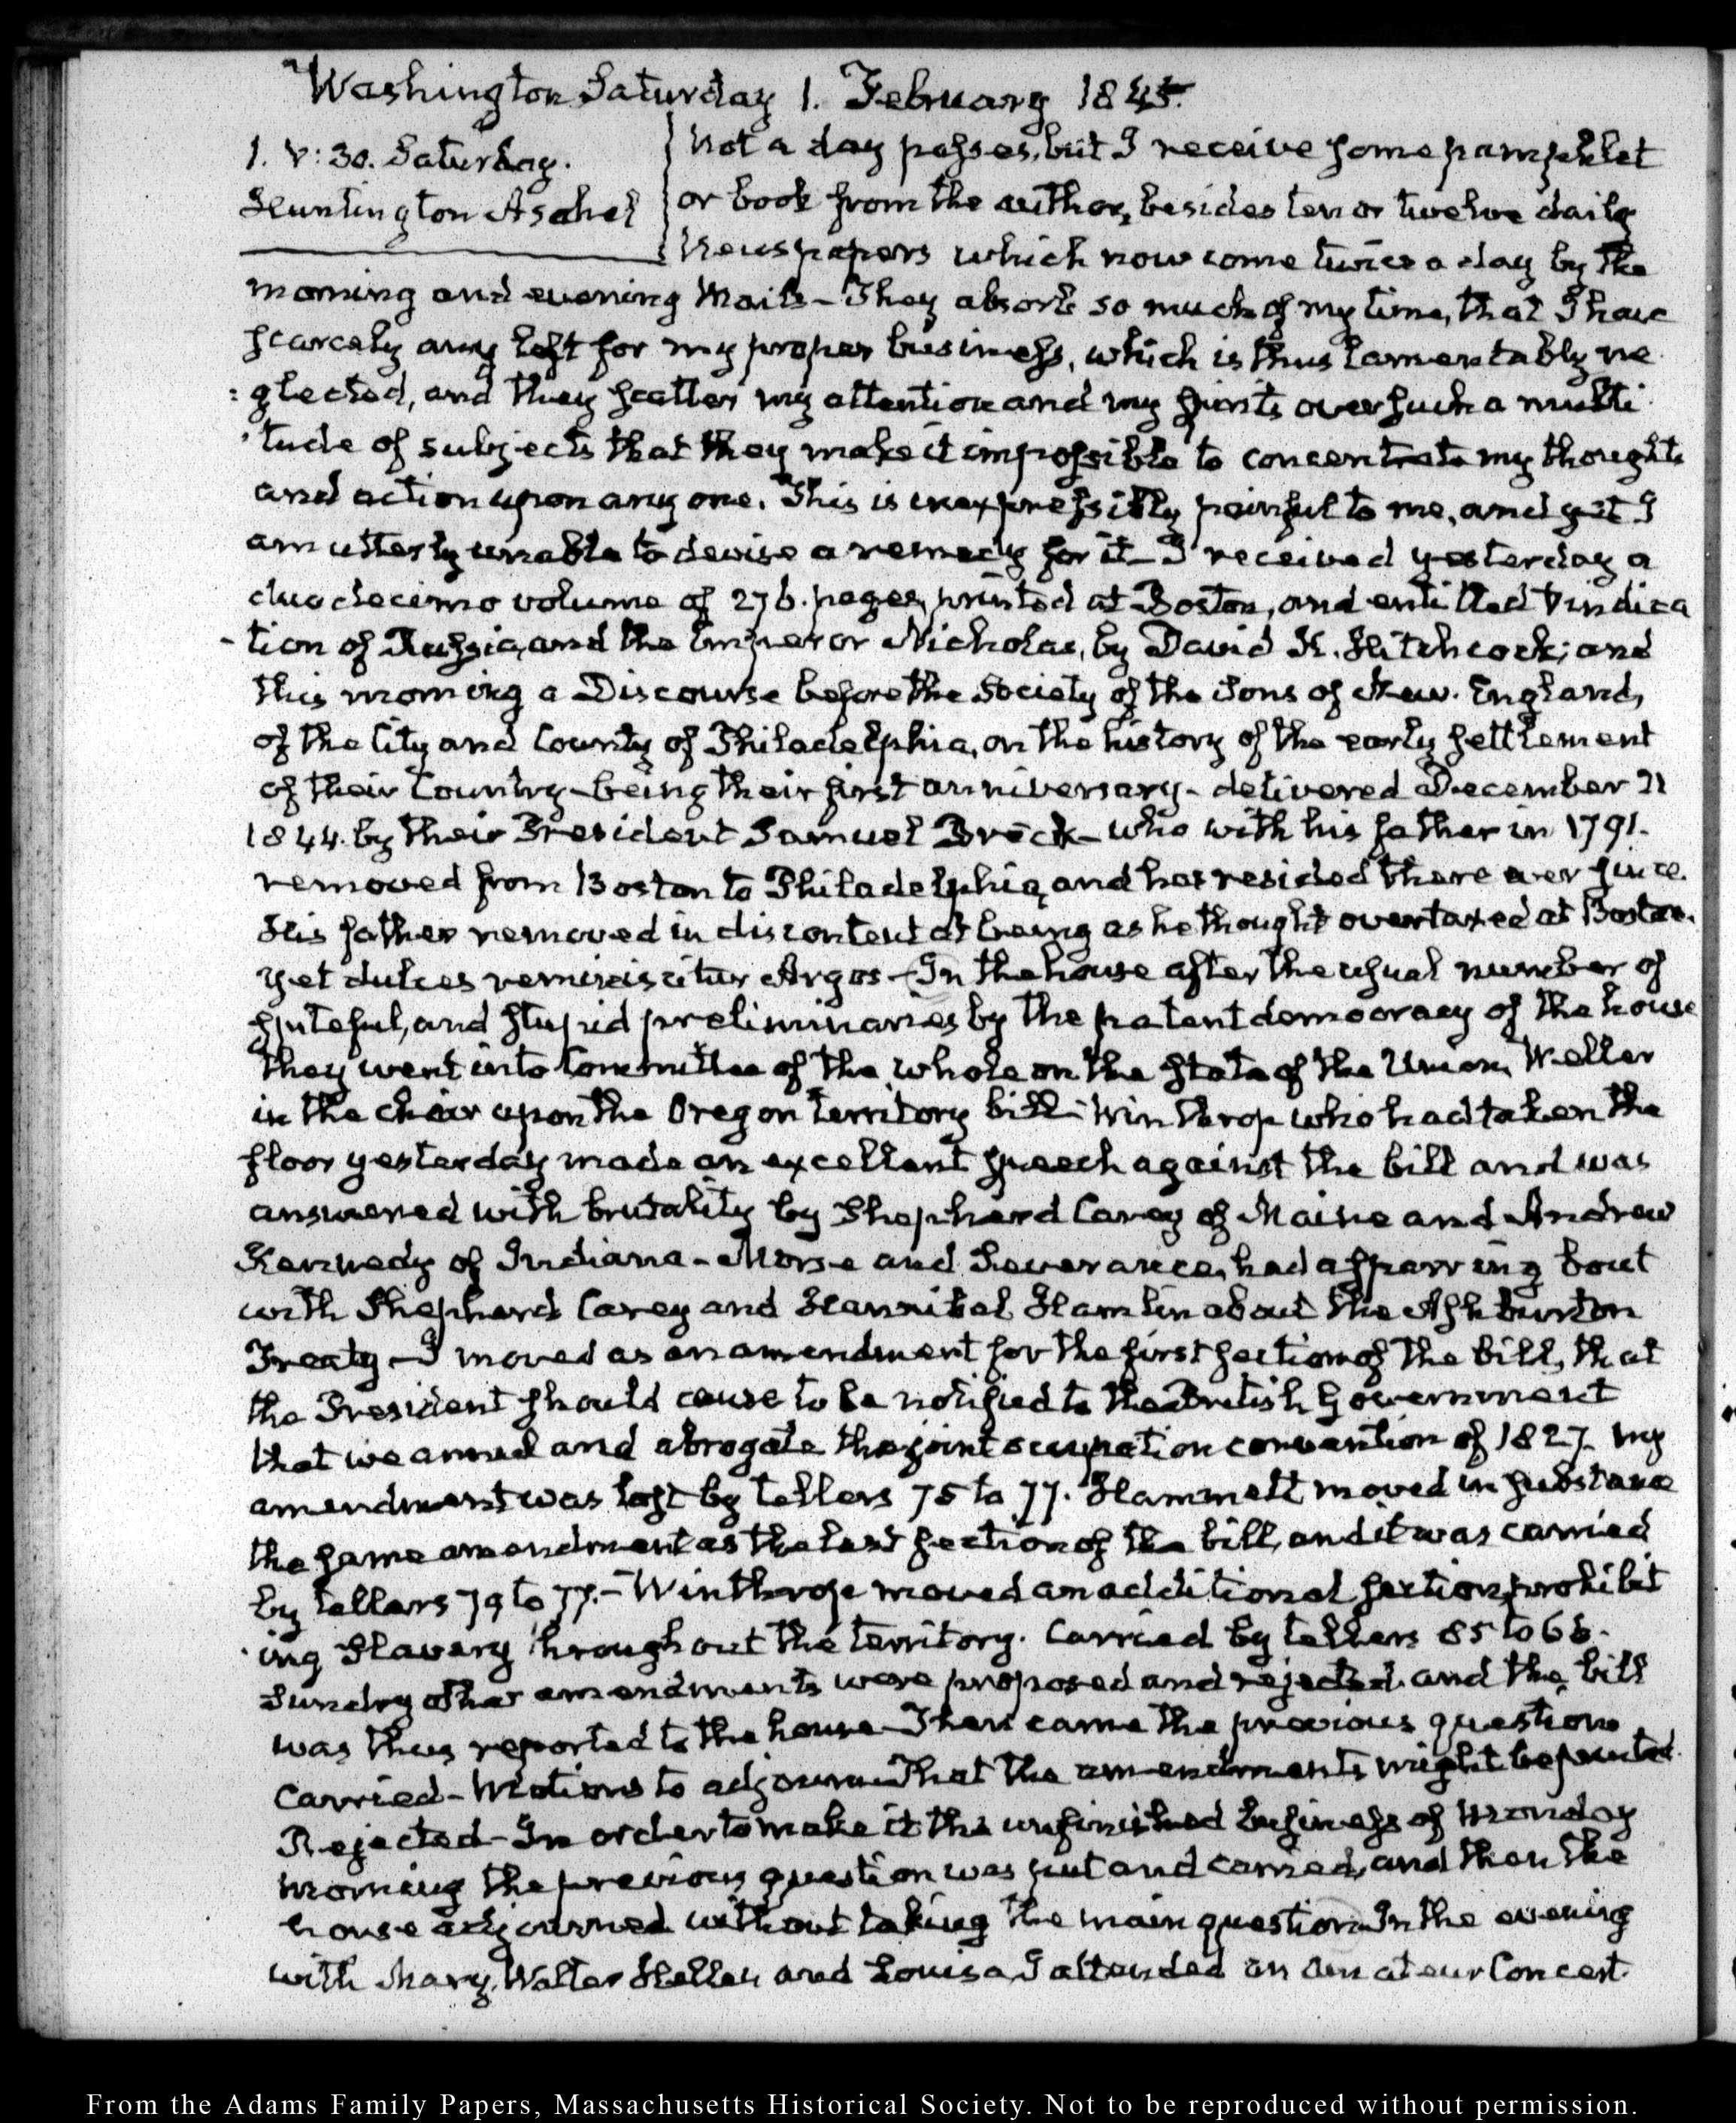 Washington Saturday 1. February 1845.
1. V:30. Saturday.
Huntington Asahel
Not a day passes, but I receive some pamphlet
or book from the author, besides ten or twelve daily
Newspapers which now come twice a day by the
morning and evening Mails – They absorb so much of my time, that I have
scarcely any left for my proper business, which is thus lamentably ne
: glected, and they scatter my attention and my spirits over such a multi
· tude of subjects that they make it impossible to concentrate my thoughts
and action upon any one. This is inexpressibly painful to me, and yet I
am utterly unable to devise a remedy for it – I received yesterday a
duodecimo volume of 276. pages, printed at Boston, and entitled Vindica
- tion of Russia, and the Emperor Nicholas, by David K. Hitchcock; and
this morning a Discourse before the Society of the Sons of New. England,
of the City and County of Philadelphia, on the history of the early settlement
of their Country – being their first anniversary – delivered December 21
1844. by their President Samuel Breck – who with his father in 1791.
removed from Boston to Philadelphia, and has resided there ever since.
His father removed in discontent at being as he thought overtaxed at Boston.
yet dulces reminiscitur Argos – In the house after the usual number of
spiteful, and stupid preliminaries by the patent democracy of the house
they went into Committee of the whole on the state of the Union, Weller
in the chair upon the Oregon territory bill – Winthrop who had taken the
floor yesterday made an excellent speech against the bill and was
answered with brutality by Shephard Carey of Maine and Andrew
Kennedy of Indiana – Morse and Severance, had a sparring bout
with Shephard Carey and Hannibal Hamlin about the Ashburton
Treaty – I moved as an amendment for the first section of the bill, that
the President should cause to be notified to the British Government
that we annul and abrogate the joint occupation convention of 1827. My
amendment was lost by tellers 75 to 77. Hammett moved in substance
the same amendment as the last section of the bill, and it was carried
by tellers 79 to 77. – Winthrop moved an additional section, prohibit
· ing Slavery throughout the territory. Carried by tellers 85 to 66.
Sundry other amendments were proposed and rejected and the bill
was thus reported to the house – Then came the previous question
carried – Motions to adjourn – That the amendments might be printed.
Rejected – In order to make it the unfinished business of Monday
morning the previous question was put and carried, and then the
house adjourned without taking the main question – In the evening
with Mary, Walter Hellen and Louisa, I attended an amateur Concert.
From the Adams Family Papers, Massachusetts Historical Society. Not to be reproduced without permission.